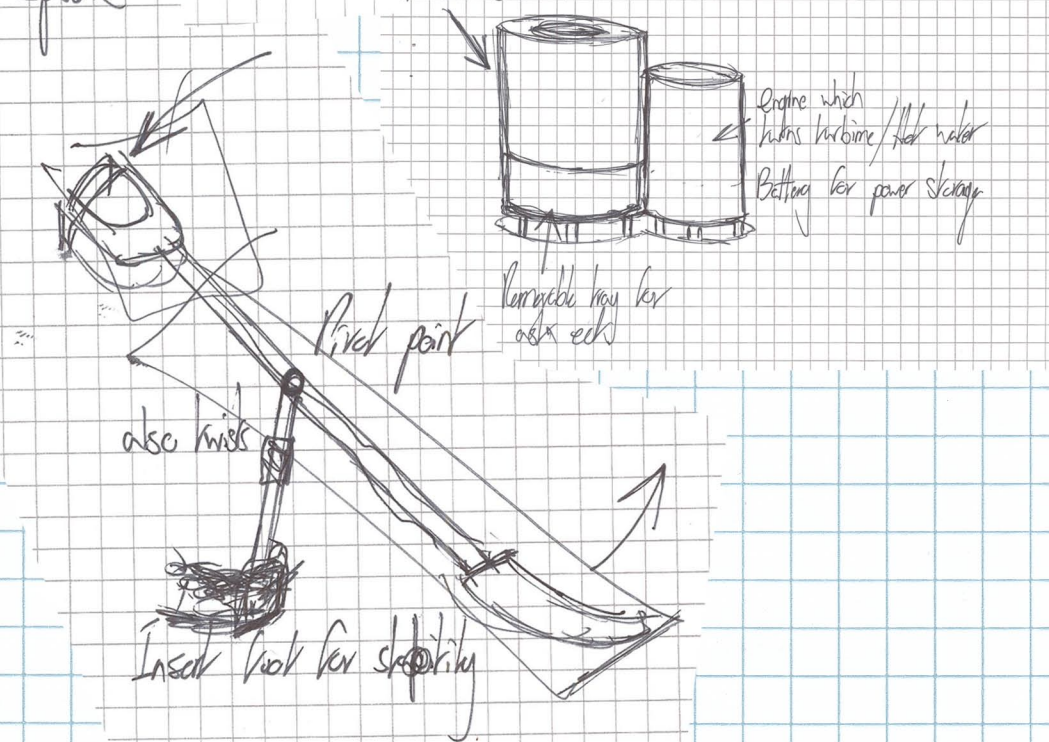 engine which
turns turbine/Hot water
Battery for power storage
Removable tray for
ash ect
Pivot point
also twists
Insert foot for stability